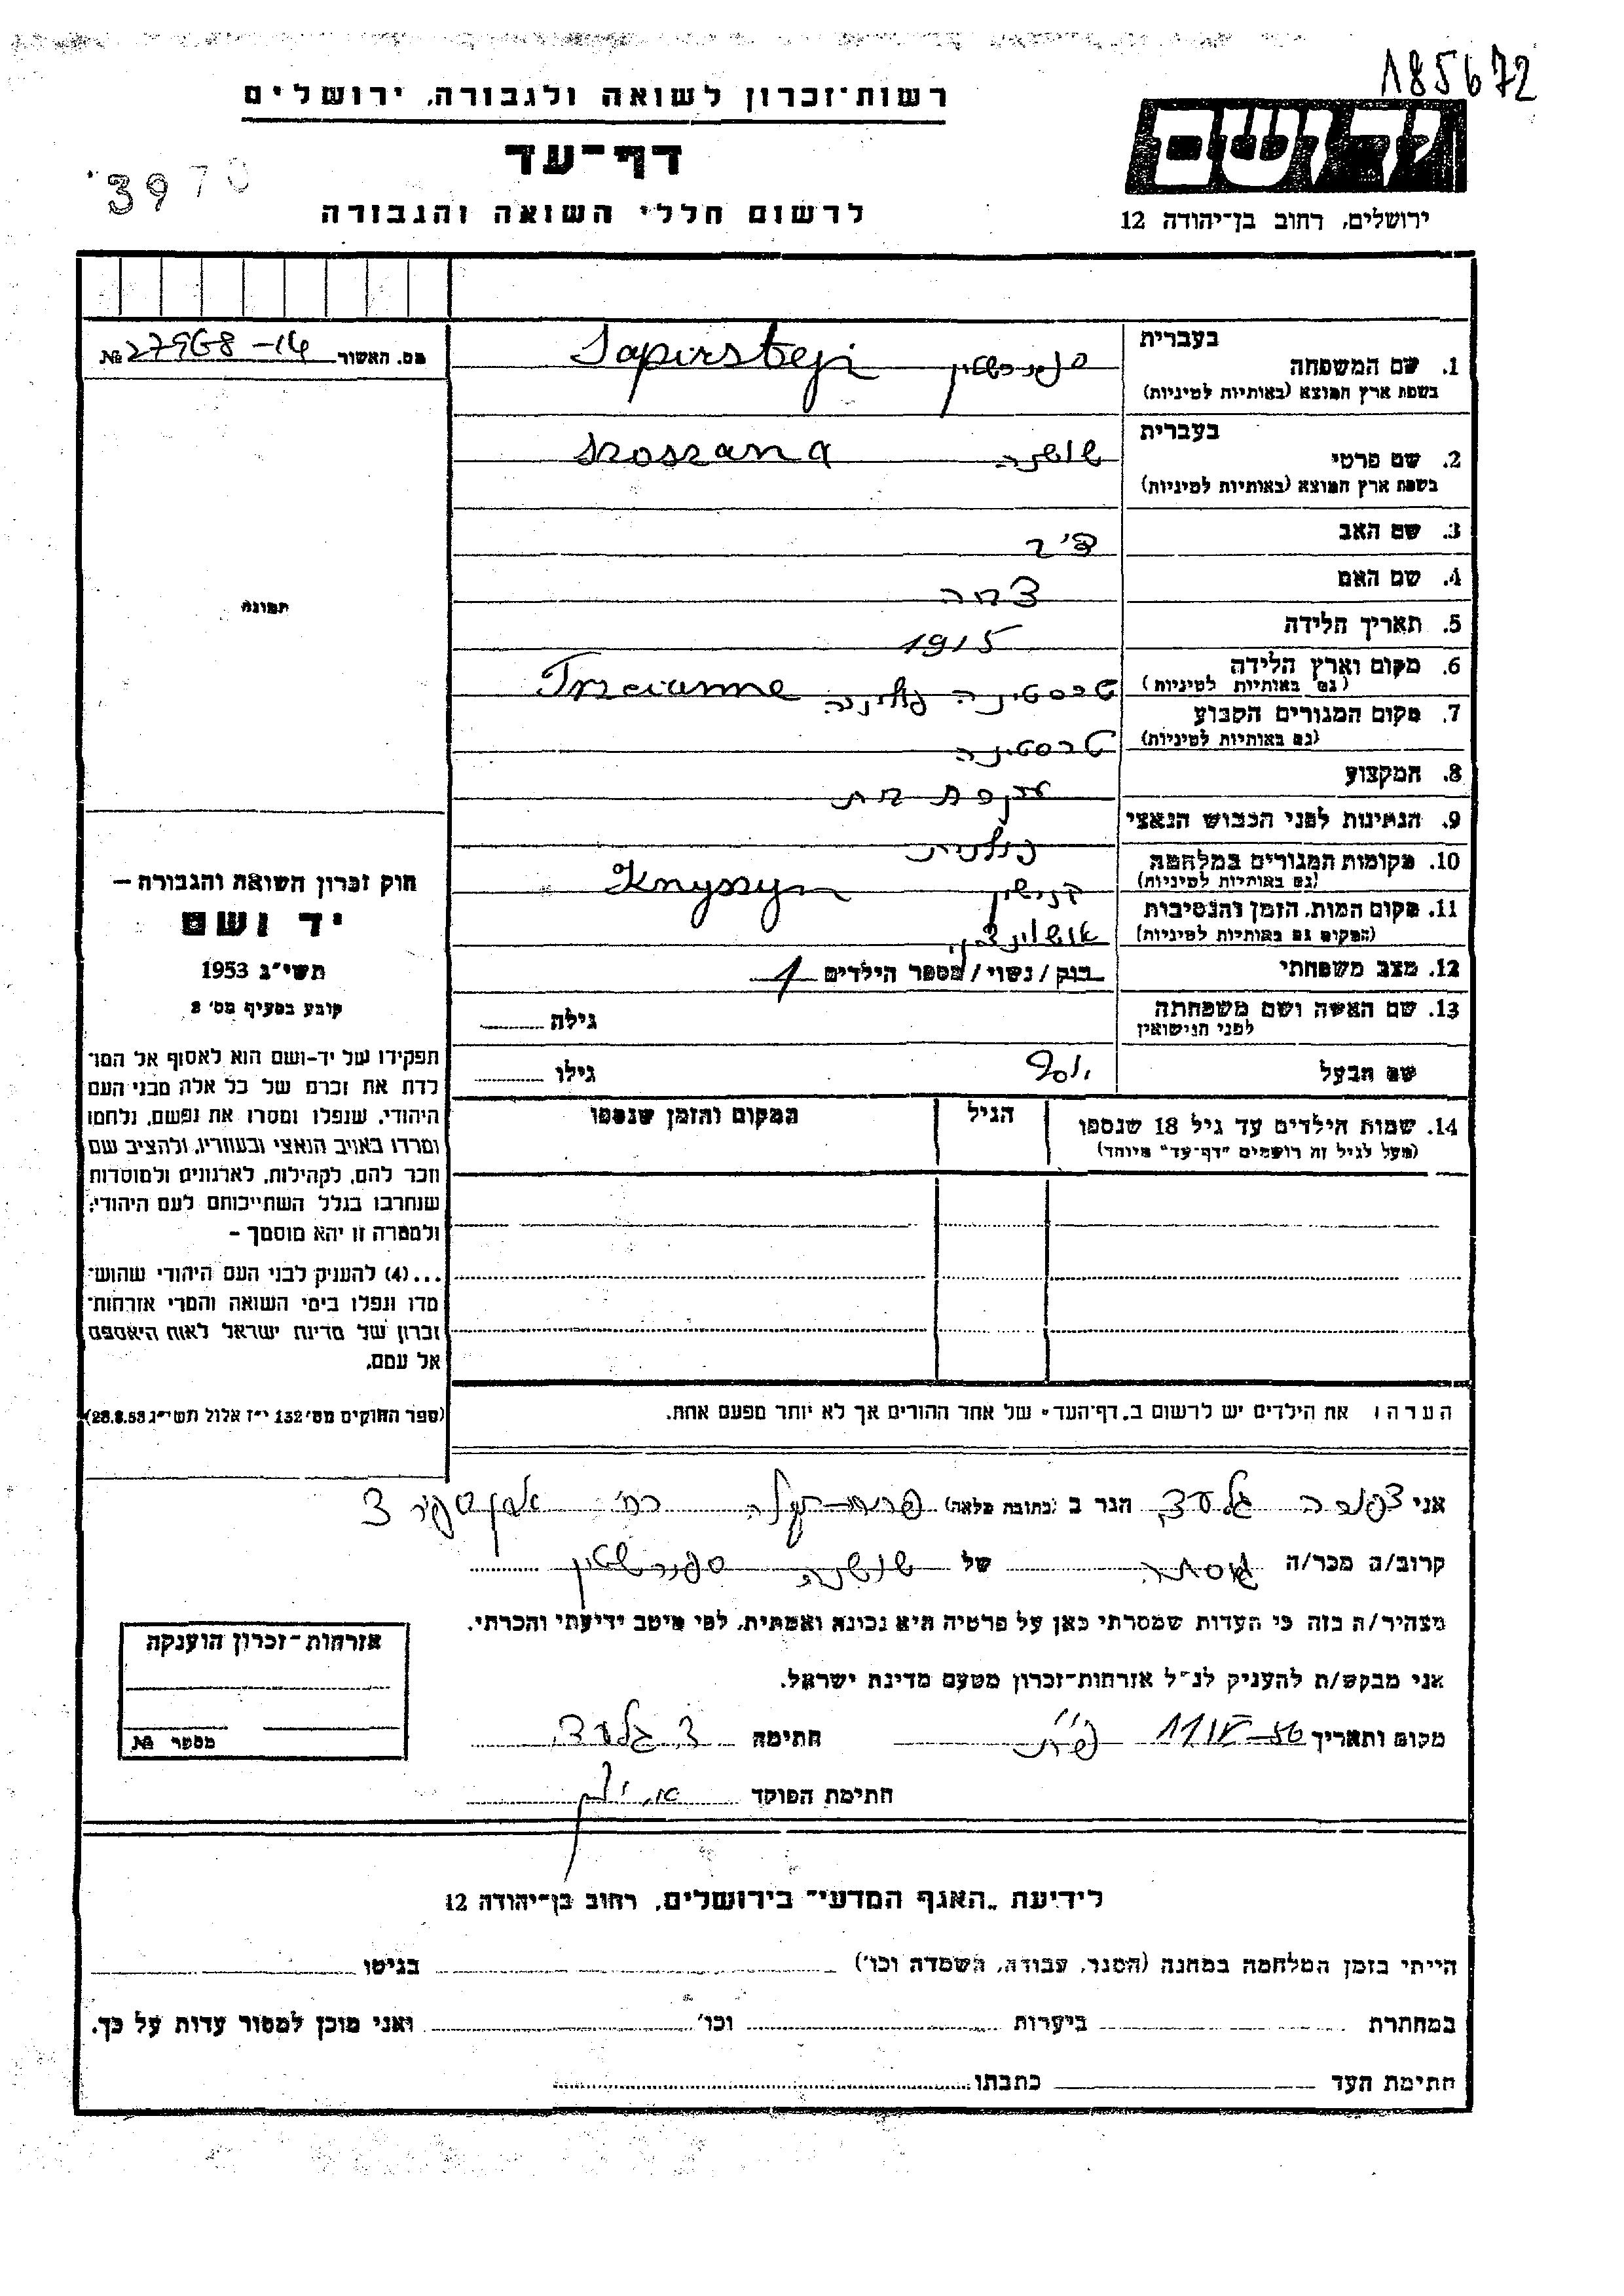 185672
רשות־זכרון לשואה ולגבורה, ירושלים
דף־עד
3970
לרשום חללי השואה והגבורה
יד ושם
ירושלים, רחוב בן־יהודה 12
מס. האשור № 27968-14
בעברית
1. שם המשפחה ספירשטין Sapirstejn
בשפת ארץ המוצא (באותיות לטיניות)
בעברית
2. שם פרטי שושנה szoszana
בשפת ארץ המוצא (באותיות לטיניות)
3. שם האב
4. שם האם צמה
תמונה
5. תאריך הלידה 1915
6. מקום וארץ הלידה טרסטינה פולניה Trzcianne
(גם באותיות לטיניות)
7. מקום המגורים הקבוע טרסטינה
(גם באותיות לטיניות)
8. המקצוע עקרת בית
9. הנתינות לפני הכבוש הנאצי פולנית
10. מקומות המגורים במלחמה קנישין Knyszyn
(גם באותיות לטיניות)
11. מקום המות, הזמן והנסיבות
(המקום גם באותיות לטיניות)
12. מצב משפחתי רוק / נשוי / מספר הילדים 1
13. שם האשה ושם משפחתה גילה
לפני הנישואין
שם הבעל יוסף גילו
14. שמות הילדים עד גיל 18 שנספו הגיל המקום והזמן שנספו
(מעל לגיל זה רושמים "דף־עד" מיוחד)
הערה: את הילדים יש לרשום ב„דף־העד" של אחד ההורים אך לא יותר מפעם אחת.
חוק זכרון השואה והגבורה —
יד ושם
תשי״ג 1953
קובע בסעיף מס׳ 2
תפקידו של יד-ושם הוא לאסוף אל המו־
לדת את זכרם של כל אלה מבני העם
היהודי, שנפלו ומסרו את נפשם, נלחמו
ומרדו באויב הנאצי ובעוזריו, ולהציב שם
וזכר להם, לקהילות, לארגונים ולמוסדות
שנחרבו בגלל השתייכותם לעם היהודי;
ולמטרה זו יהא מוסמך –
...(4) להעניק לבני העם היהודי שהוש־
מדו ונפלו בימי השואה והמרי אזרחות־
זכרון של מדינת ישראל לאות היאספם
אל עמם.
(ספר החוקים מס׳ 132 י״ז אלול תשי״ג 28.8.53)
אני צפורה גלעד הגר ב (כתובת מלאה) פתח-תקוה רח׳ 3
קרוב/ה מכר/ה גיסתה של שושנה ספירשטין
מצהיר/ה בזה כי העדות שמסרתי כאן על פרטיה היא נכונה ואמתית, לפי מיטב ידיעתי והכרתי.
אני מבקש/ת להעניק לנ״ל אזרחות־זכרון מטעם מדינת ישראל.
מקום ותאריך חתימה צ. גלעד
חתימת הפוקד
אזרחות־זכרון הוענקה
מספר №
לידיעת „האגף המדעי" בירושלים, רחוב בן־יהודה 12
הייתי בזמן המלחמה במחנה (הסגר, עבודה, השמדה וכו׳) בגיטו
במחתרת ביערות וכו׳ ואני מוכן למסור עדות על כך.
חתימת העד כתבתו